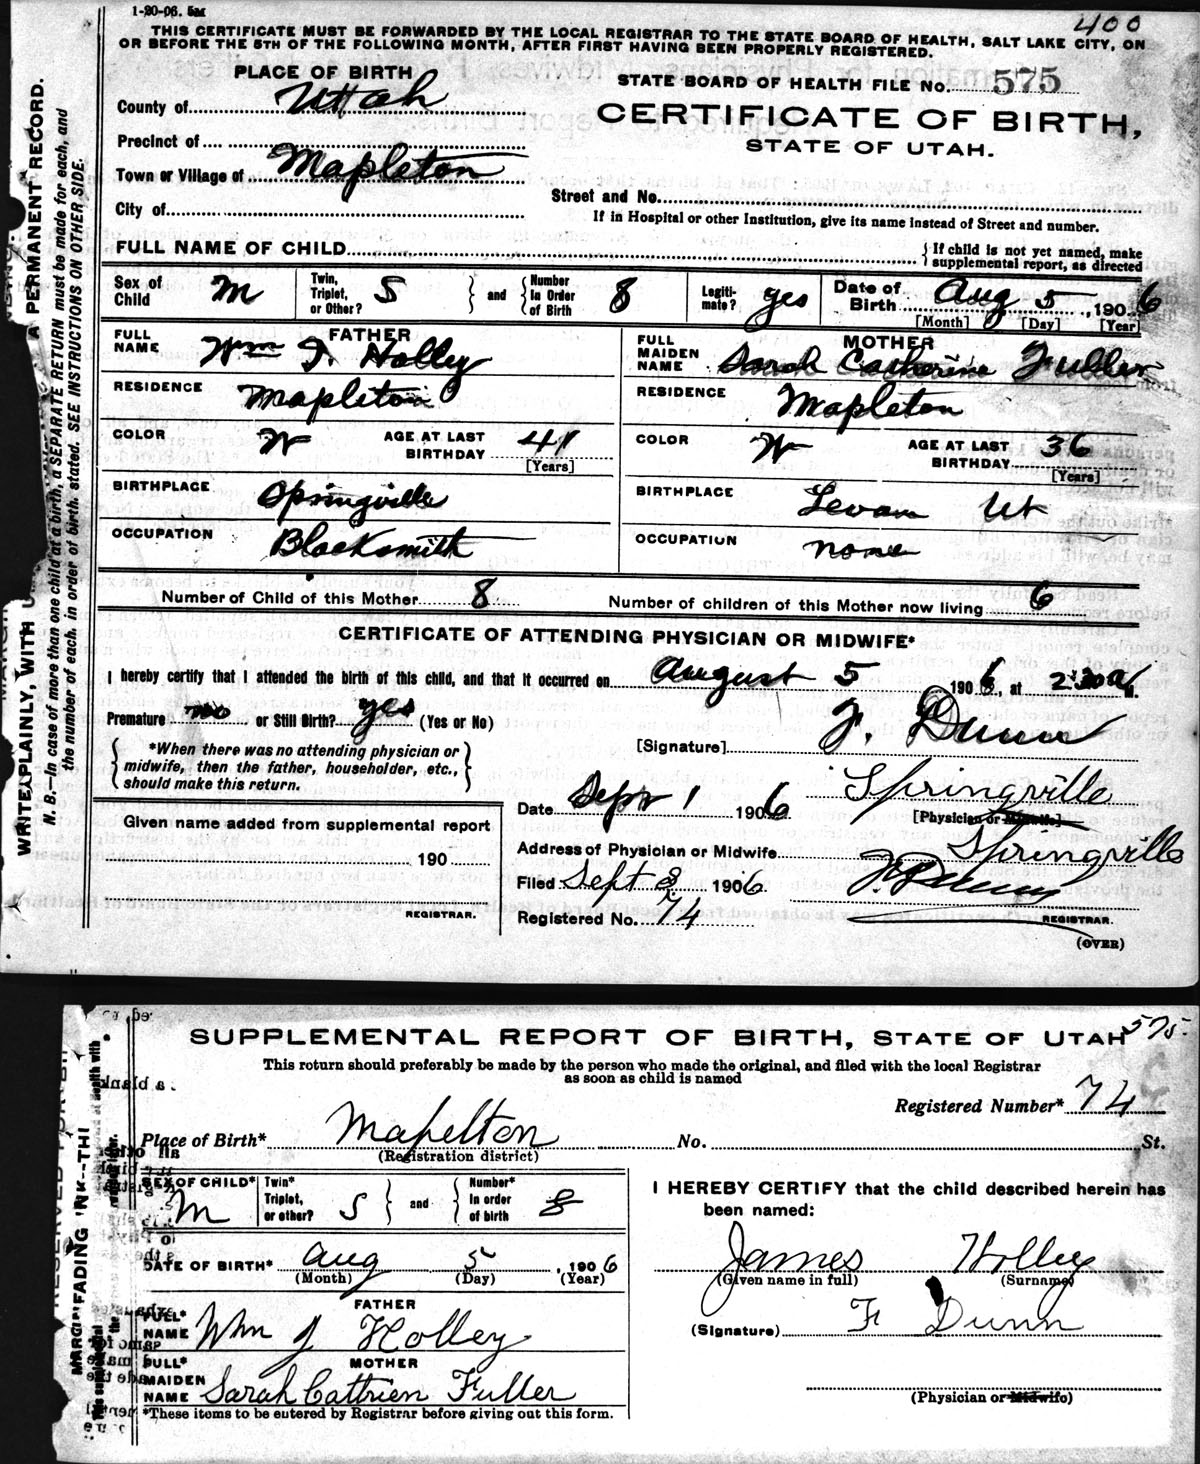 1-20-06. 5M
400
THIS CERTIFICATE MUST BE FORWARDED BY THE LOCAL REGISTRAR TO THE STATE BOARD OF HEALTH, SALT LAKE CITY, ON
OR BEFORE THE 5TH OF THE FOLLOWING MONTH, AFTER FIRST HAVING BEEN PROPERLY REGISTERED.
PLACE OF BIRTH
County of Uttah
Precinct of
Town or Village of Mapleton
City of
STATE BOARD OF HEALTH FILE No. 575
CERTIFICATE OF BIRTH,
STATE OF UTAH.
Street and No.
If in Hospital or other Institution, give its name instead of Street and number.
FULL NAME OF CHILD
{ If child is not yet named, make
supplemental report, as directed
Sex of Child M
Twin, Triplet, or Other? S
and
Number In Order of Birth 8
Legitimate? yes
Date of Birth Aug 5, 1906
[Month] [Day] [Year]
FATHER
FULL NAME Wm J. Holley
RESIDENCE Mapleton
COLOR W AGE AT LAST BIRTHDAY 41
[Years]
BIRTHPLACE Springville
OCCUPATION Blacksmith
MOTHER
FULL MAIDEN NAME Sarah Catherine Fuller
RESIDENCE Mapleton
COLOR W AGE AT LAST BIRTHDAY 36
[Years]
BIRTHPLACE Levan Ut
OCCUPATION none
Number of Child of this Mother 8 Number of children of this Mother now living 6
CERTIFICATE OF ATTENDING PHYSICIAN OR MIDWIFE*
I hereby certify that I attended the birth of this child, and that it occurred on August 5 1906, at 2:30 a M.
Premature no or Still Birth? yes (Yes or No)
*When there was no attending physician or
midwife, then the father, householder, etc.,
should make this return.
[Signature] F. Dunn
Springville
[Physician or Midwife]
Date Sept 1 1906
Address of Physician or Midwife Springville
Filed Sept 3 1906
F. Dunn
Registered No. 74 REGISTRAR.
(OVER)
Given name added from supplemental report
190
REGISTRAR.
WRITE PLAINLY, WITH
A PERMANENT RECORD.
N. B.—In case of more than one child at a birth, a SEPARATE RETURN must be made for each, and
the number of each, in order of birth, stated. SEE INSTRUCTIONS ON OTHER SIDE.
SUPPLEMENTAL REPORT OF BIRTH, STATE OF UTAH
575
This return should preferably be made by the person who made the original, and filed with the local Registrar
as soon as child is named
Registered Number* 74
Place of Birth* Mapelton No. St.
(Registration district)
SEX OF CHILD* M
Twin* Triplet, or other? S
and
Number* In order of birth 8
DATE OF BIRTH* Aug 5, 1906
(Month) (Day) (Year)
FATHER
FULL* NAME Wm J Holley
MOTHER
FULL* MAIDEN NAME Sarah Cattrien Fuller
*These items to be entered by Registrar before giving out this form.
I HEREBY CERTIFY that the child described herein has
been named:
James Holley
(Given name in full) (Surname)
(Signature) F Dunn
(Physician or Midwife)